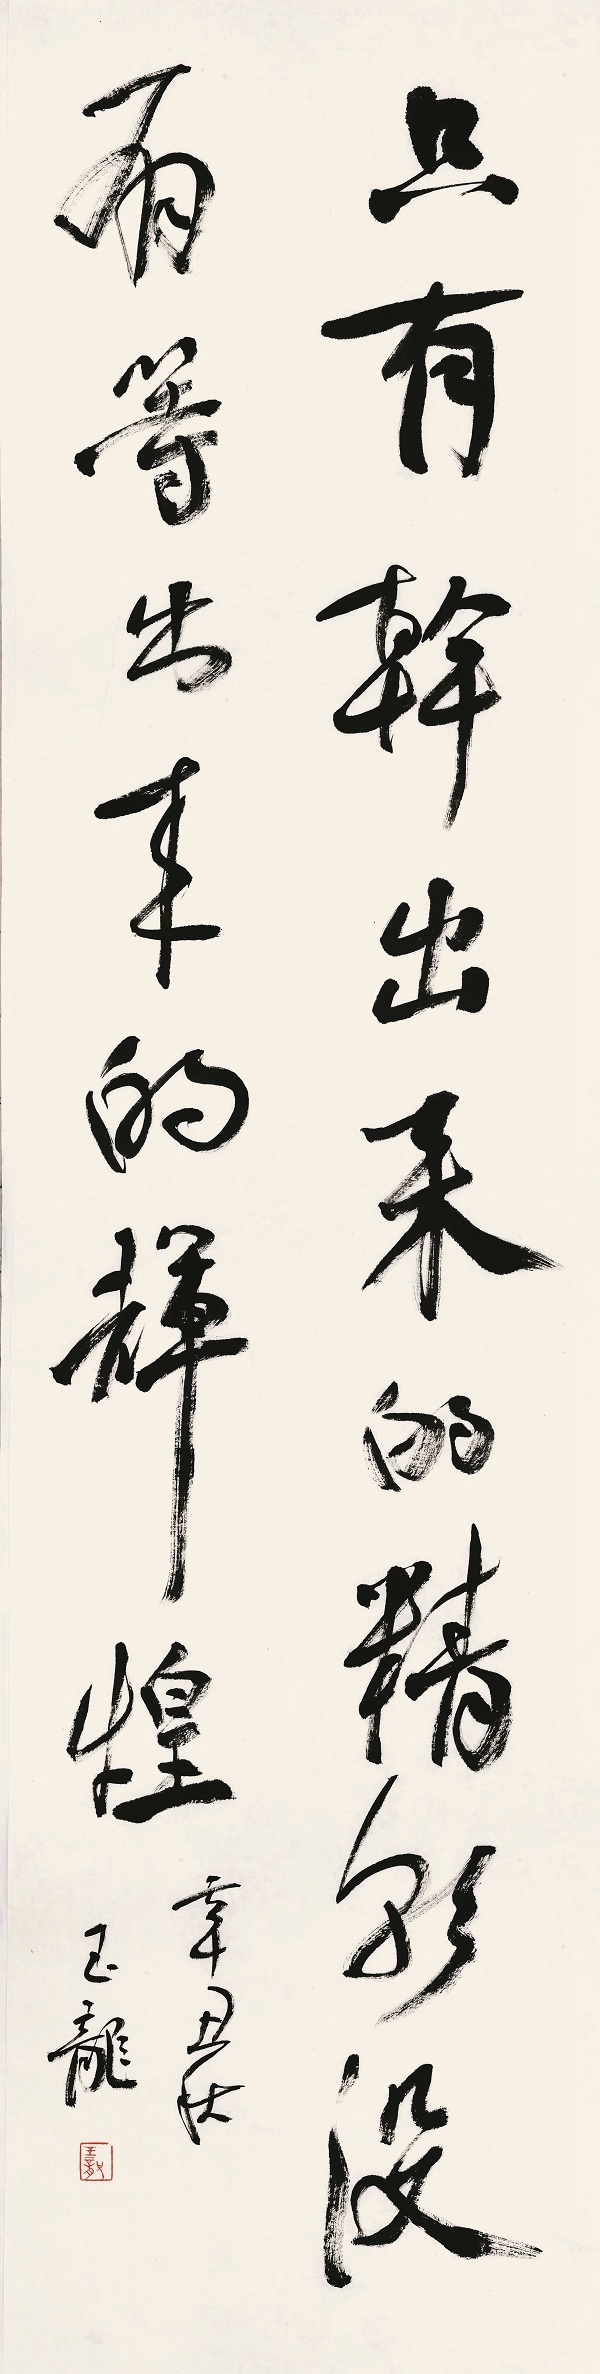 只有幹出来的精彩没
有等出来的輝煌
辛丑秋
玉龍